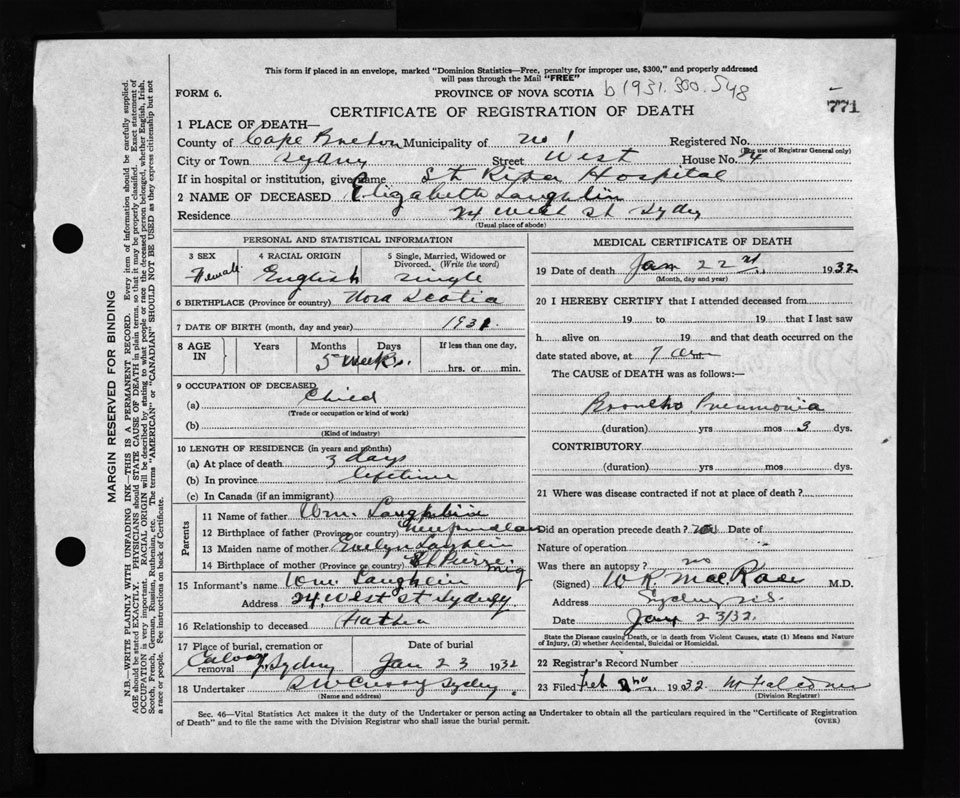 This form if placed in an envelope, marked "Dominion Statistics—Free, penalty for improper use, $300," and properly addressed
will pass through the Mail "FREE"
FORM 6. PROVINCE OF NOVA SCOTIA b 1931.300.548
771
CERTIFICATE OF REGISTRATION OF DEATH
1 PLACE OF DEATH—
County of Cape Breton Municipality of No 1 Registered No.
(For use of Registrar General only)
City or Town Sydney Street West House No. 24
If in hospital or institution, give name St Rita Hospital
2 NAME OF DECEASED Elizabeth Laughlin
Residence 24 West St Sydney
(Usual place of abode)
PERSONAL AND STATISTICAL INFORMATION
3 SEX 4 RACIAL ORIGIN 5 Single, Married, Widowed or
Divorced. (Write the word)
Female English Single
6 BIRTHPLACE (Province or country) Nova Scotia
7 DATE OF BIRTH (month, day and year) 1931
8 AGE IN Years Months Days If less than one day,
5 weeks hrs. or min.
9 OCCUPATION OF DECEASED
(a) Child
(Trade or occupation or kind of work)
(b)
(Kind of industry)
10 LENGTH OF RESIDENCE (in years and months)
(a) At place of death 3 days
(b) In province lifetime
(c) In Canada (if an immigrant)
Parents
11 Name of father Wm. Laughlin
12 Birthplace of father (Province or country) Newfoundland
13 Maiden name of mother Evelyn Laughlin
14 Birthplace of mother (Province or country) St Pierre Miq
15 Informant's name Wm Laughlin
Address 24 West St Sydney
16 Relationship to deceased Father
17 Place of burial, cremation or removal Date of burial
Calvary Sydney Jan 23 1932
18 Undertaker Sydney
(Name and address)
MEDICAL CERTIFICATE OF DEATH
19 Date of death Jan 22nd 1932
(Month, day and year)
20 I HEREBY CERTIFY that I attended deceased from
19 to 19 that I last saw
h alive on 19 and that death occurred on the
date stated above, at 7 am
The CAUSE of DEATH was as follows:—
Broncho Pneumonia
(duration) yrs mos 3 dys.
CONTRIBUTORY
(duration) yrs mos dys.
21 Where was disease contracted if not at place of death?
Did an operation precede death? no Date of
Nature of operation
Was there an autopsy? no
(Signed) W R MacRae M.D.
Address Sydney N.S.
Date Jany 23/32.
State the Disease causing Death, or in death from Violent Causes, state (1) Means and Nature
of Injury, (2) whether Accidental, Suicidal or Homicidal.
22 Registrar's Record Number
23 Filed Feb 2nd 1932
(Division Registrar)
Sec. 46—Vital Statistics Act makes it the duty of the Undertaker or person acting as Undertaker to obtain all the particulars required in the "Certificate of Registration
of Death" and to file the same with the Division Registrar who shall issue the burial permit. (OVER)
MARGIN RESERVED FOR BINDING
N.B.—WRITE PLAINLY WITH UNFADING INK—THIS IS A PERMANENT RECORD. Every item of Information should be carefully supplied.
AGE should be stated EXACTLY. PHYSICIANS should STATE CAUSE OF DEATH in plain terms, so that it may be properly classified. Exact statement of
OCCUPATION is very important. RACIAL ORIGIN will be described by stating to what people or race the deceased person belonged, whether English, Irish,
Scotch, French, German, Russian, Ruthenian, etc. The terms "AMERICAN" or "CANADIAN" SHOULD NOT BE USED as they express citizenship but not
a race or people. See instructions on back of Certificate.